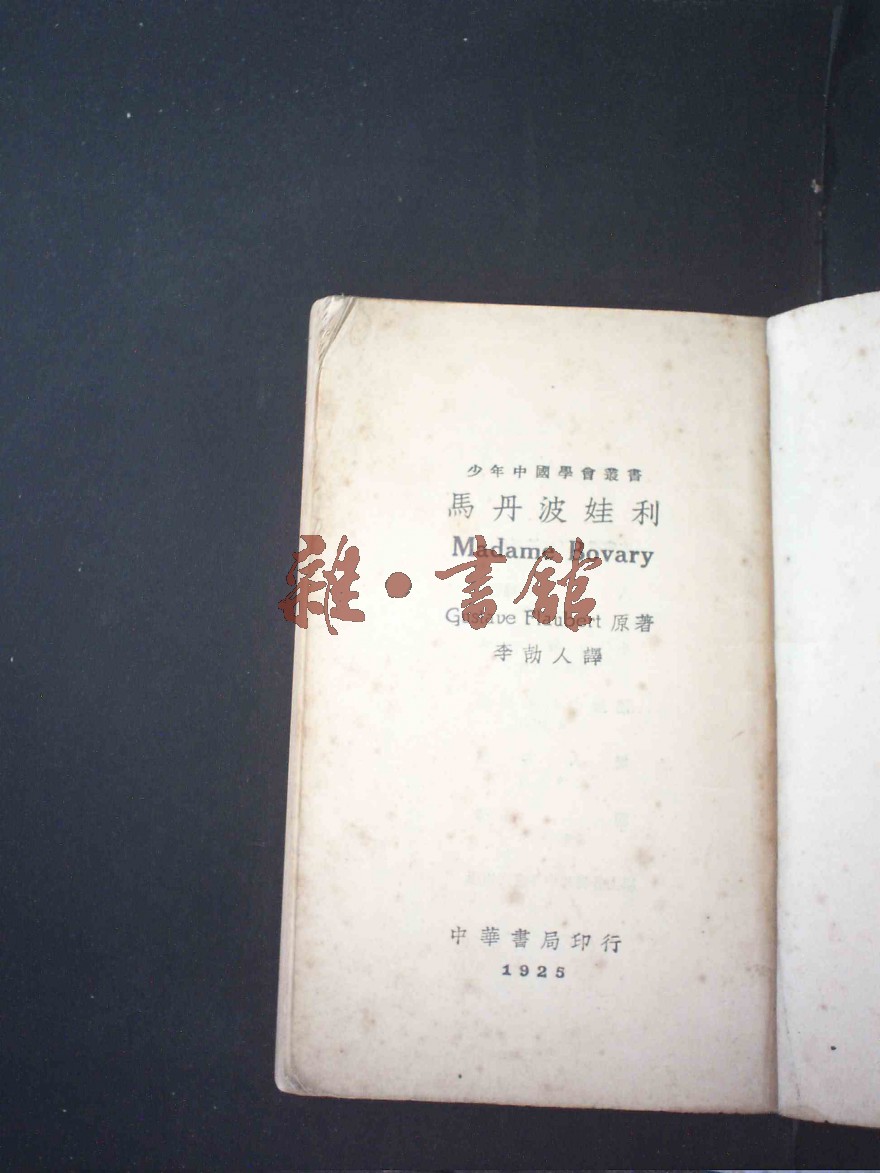 少年中國學會叢書
馬丹波娃利
Madame Bovary
雜·書館
Gustave Flaubert 原著
李劼人譯
中華書局印行
1925